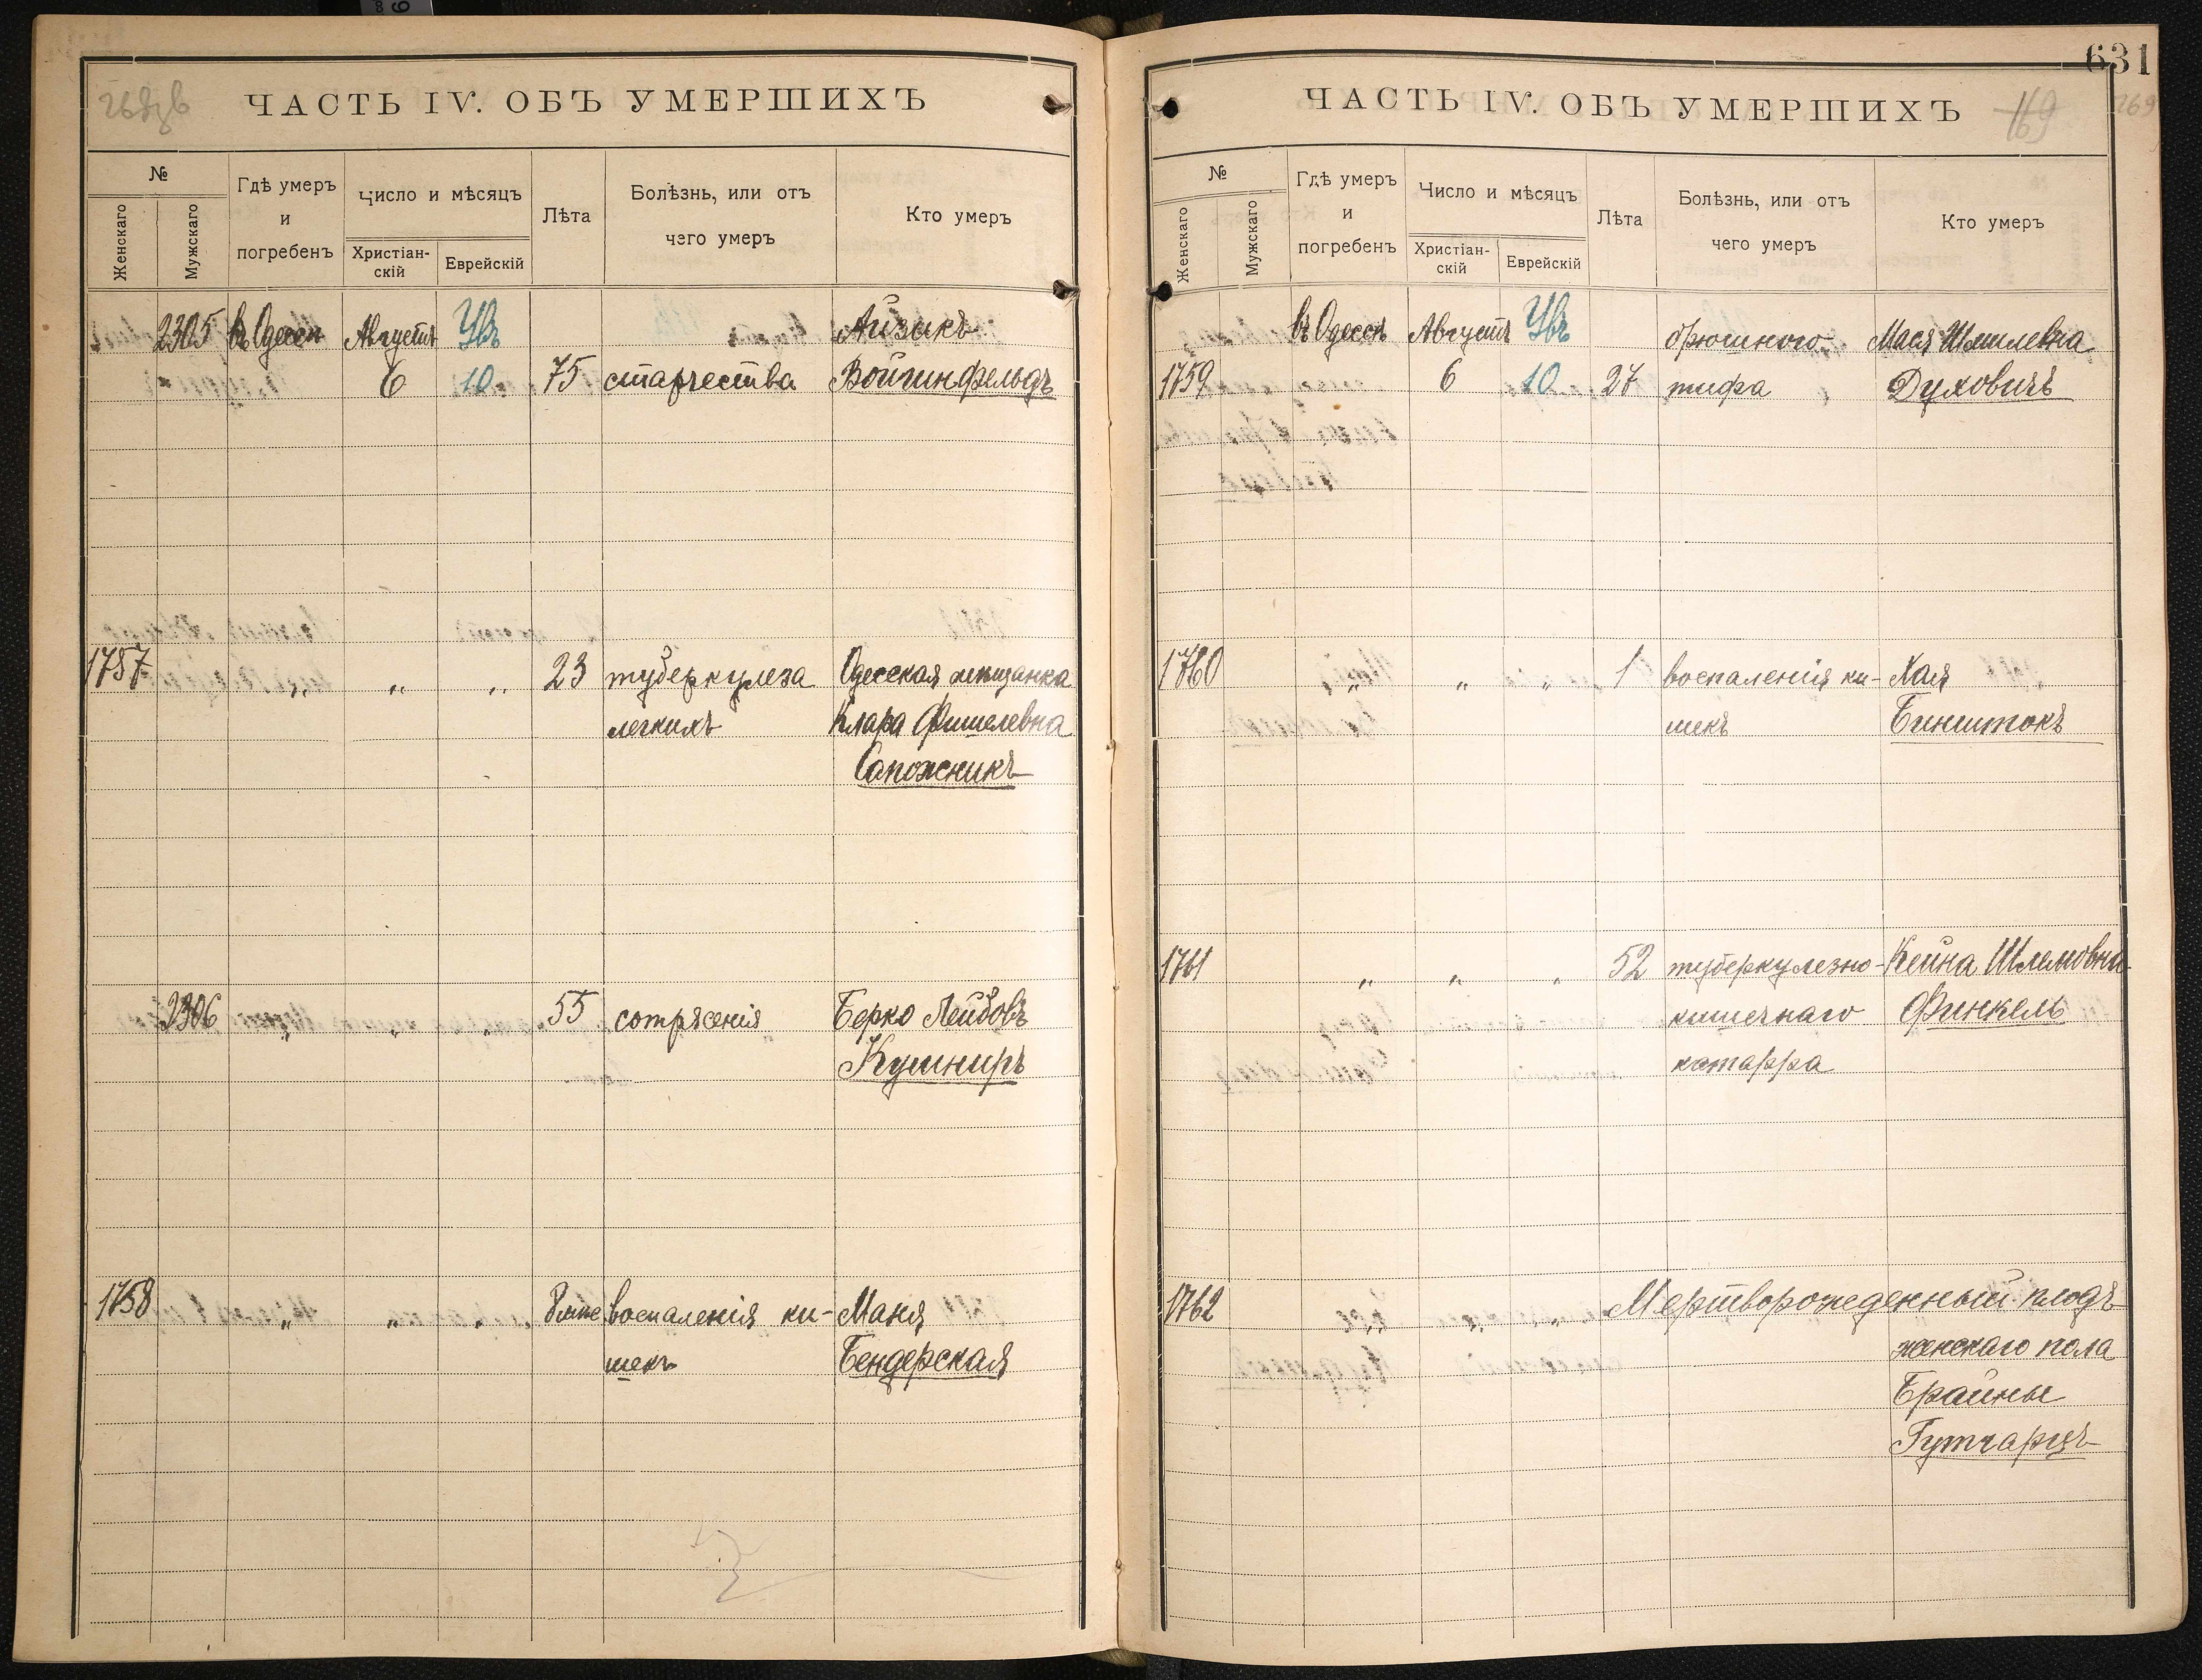 631
169
ЧАСТЬ IV. ОБЪ УМЕРШИХЪ
№
Женскаго
Мужскаго
Гдѣ умеръ
и
погребенъ
Число и мѣсяцъ
Христіан-
скій
Еврейскій
Лѣта
Болѣзнь, или отъ
чего умеръ
Кто умеръ
2305 въ Одессѣ Августъ Увъ Айзикъ
6 10 75 старчества Войтинфельдъ
1757 „ „ „ 23 туберкулеза Одесская мѣщанка
легкихъ Клара Фишелевна
Сапожникъ
2306 „ „ „ 55 сотрясенія Берко Лейбовъ
Кушниръ
1758 „ „ „ воспаленія ки- Маня
шекъ Бендерская
ЧАСТЬ IV. ОБЪ УМЕРШИХЪ
169
№
Женскаго
Мужскаго
Гдѣ умеръ
и
погребенъ
Число и мѣсяцъ
Христіан-
скій
Еврейскій
Лѣта
Болѣзнь, или отъ
чего умеръ
Кто умеръ
въ Одессѣ Августъ Увъ брюшного Мася Шмилевна
1759 6 10 27 тифа Духовичъ
1760 „ „ „ 1 воспаленія ки- Хая
шекъ Бинштокъ
1761 „ „ „ 52 туберкулезно- Кейна Шлемовна
кишечнаго Финкель
катарра
1762 „ „ „ Мертворожденный плодъ
женскаго пола
Брайны
Гутгарцъ